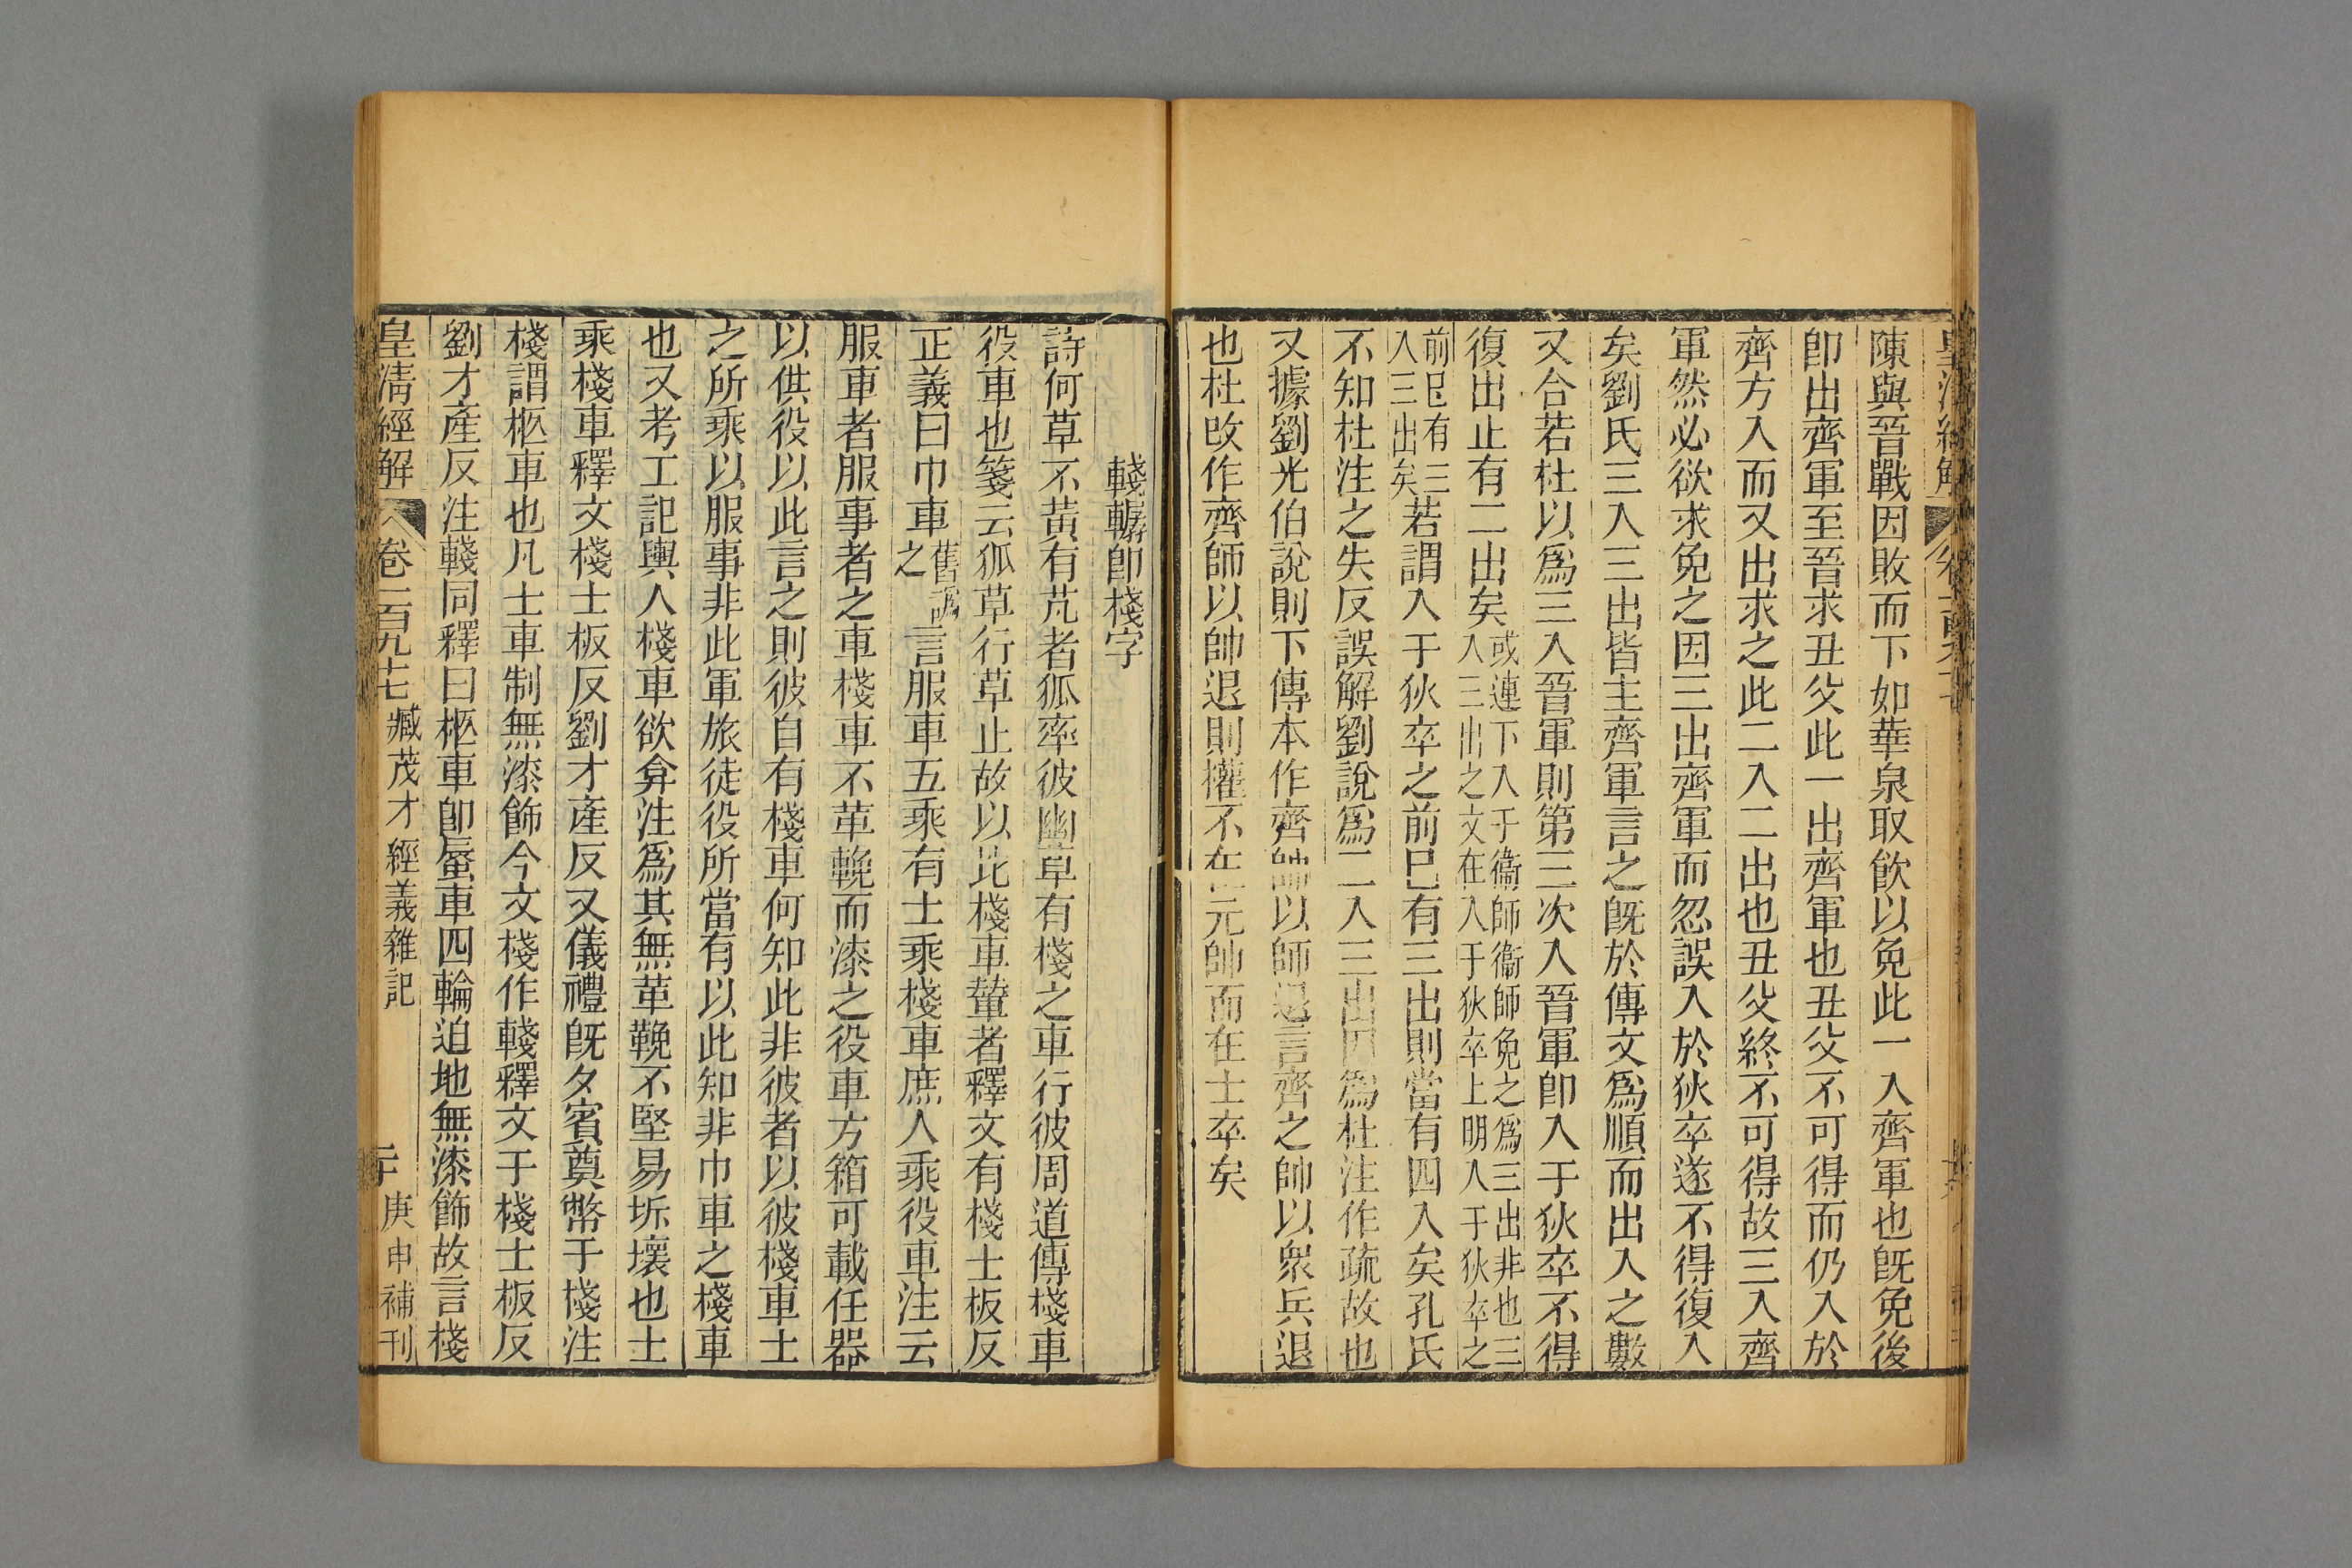 陳與晉戰因敗而下如華泉取飲以免此一入齊軍也既免後
卽出齊軍至晉求丑父此一出齊軍也丑父不可得而仍入於
齊方入而又出求之此二入二出也丑父終不可得故三入齊
軍然必欲求免之因三出齊軍而忽誤入於狄卒遂不得復入
矣劉氏三入三出皆主齊軍言之既於傳文爲順而出入之數
又合若杜以爲三入晉軍則第三次入晉軍卽入于狄卒不得
復出止有二出矣或連下入于衞師衞師免之爲三出非也三入三出之文在入于狄卒上明入于狄卒之
前巳有三入三出矣若謂入于狄卒之前巳有三出則當有四入矣孔氏
不知杜注之失反誤解劉說爲二入三出因爲杜注作疏故也
又據劉光伯說則下傳本作齊師以師退言齊之帥以衆兵退
也杜改作齊師以帥退則權不在元帥而在士卒矣
輚轏卽棧字
詩何草不黃有芃者狐率彼幽草有棧之車行彼周道傳棧車
役車也箋云狐草行草止故以比棧車輦者釋文有棧士板反
正義曰巾車舊譌之言服車五乘有士乘棧車庶人乘役車注云
服車者服事者之車棧車不革鞔而漆之役車方箱可載任器
以供役以此言之則彼自有棧車何知此非彼者以彼棧車士
之所乘以服事非此軍旅徒役所當有以此知非巾車之棧車
也又考工記輿人棧車欲弇注爲其無革鞔不堅易坼壞也士
乘棧車釋文棧士板反劉才產反又儀禮旣夕賓奠幣于棧注
棧謂柩車也凡士車制無漆飾今文棧作輚釋文于棧士板反
劉才產反注輚同釋曰柩車卽蜃車四輪迫地無漆飾故言棧
皇清經解 卷一百九七 臧茂才經義雜記 二十 庚申補刊